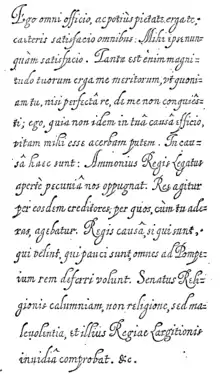 Ego omni officio, ac potius pietate erga te,
cæteris satisfacio omnibus: Mihi ipse nun-
quàm satisfacio. Tanta est enim magni-
tudo tuorum erga me meritorum, vt quoni-
am tu, nisi perfecta re, de me non conquiês-
ti; ego, quia non idem in tuâ causâ efficio,
vitam mihi esse acerbam putem. In cau-
sâ haec sunt: Ammonius Regis Legatus
apertè pecuniâ nos oppugnat. Res agitur
per eosdem creditores, per quos, cùm tu ade-
ras, agebatur. Regis causâ, si qui sunt,
qui velint, qui pauci sunt, omnes ad Pompe-
ium rem deferri volunt. Senatus Reli-
gionis calumniam, non religione, sed ma-
levolentia, et illius Regiae Largitionis
invidiâ comprobat. &c.